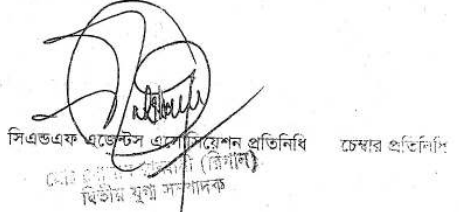 সিএন্ডএফ এজেন্টস এসোসিয়েশন প্রতিনিধি চেম্বার প্রতিনিধি
(রিগান)
দ্বিতীয় যুগ্ম সম্পাদক